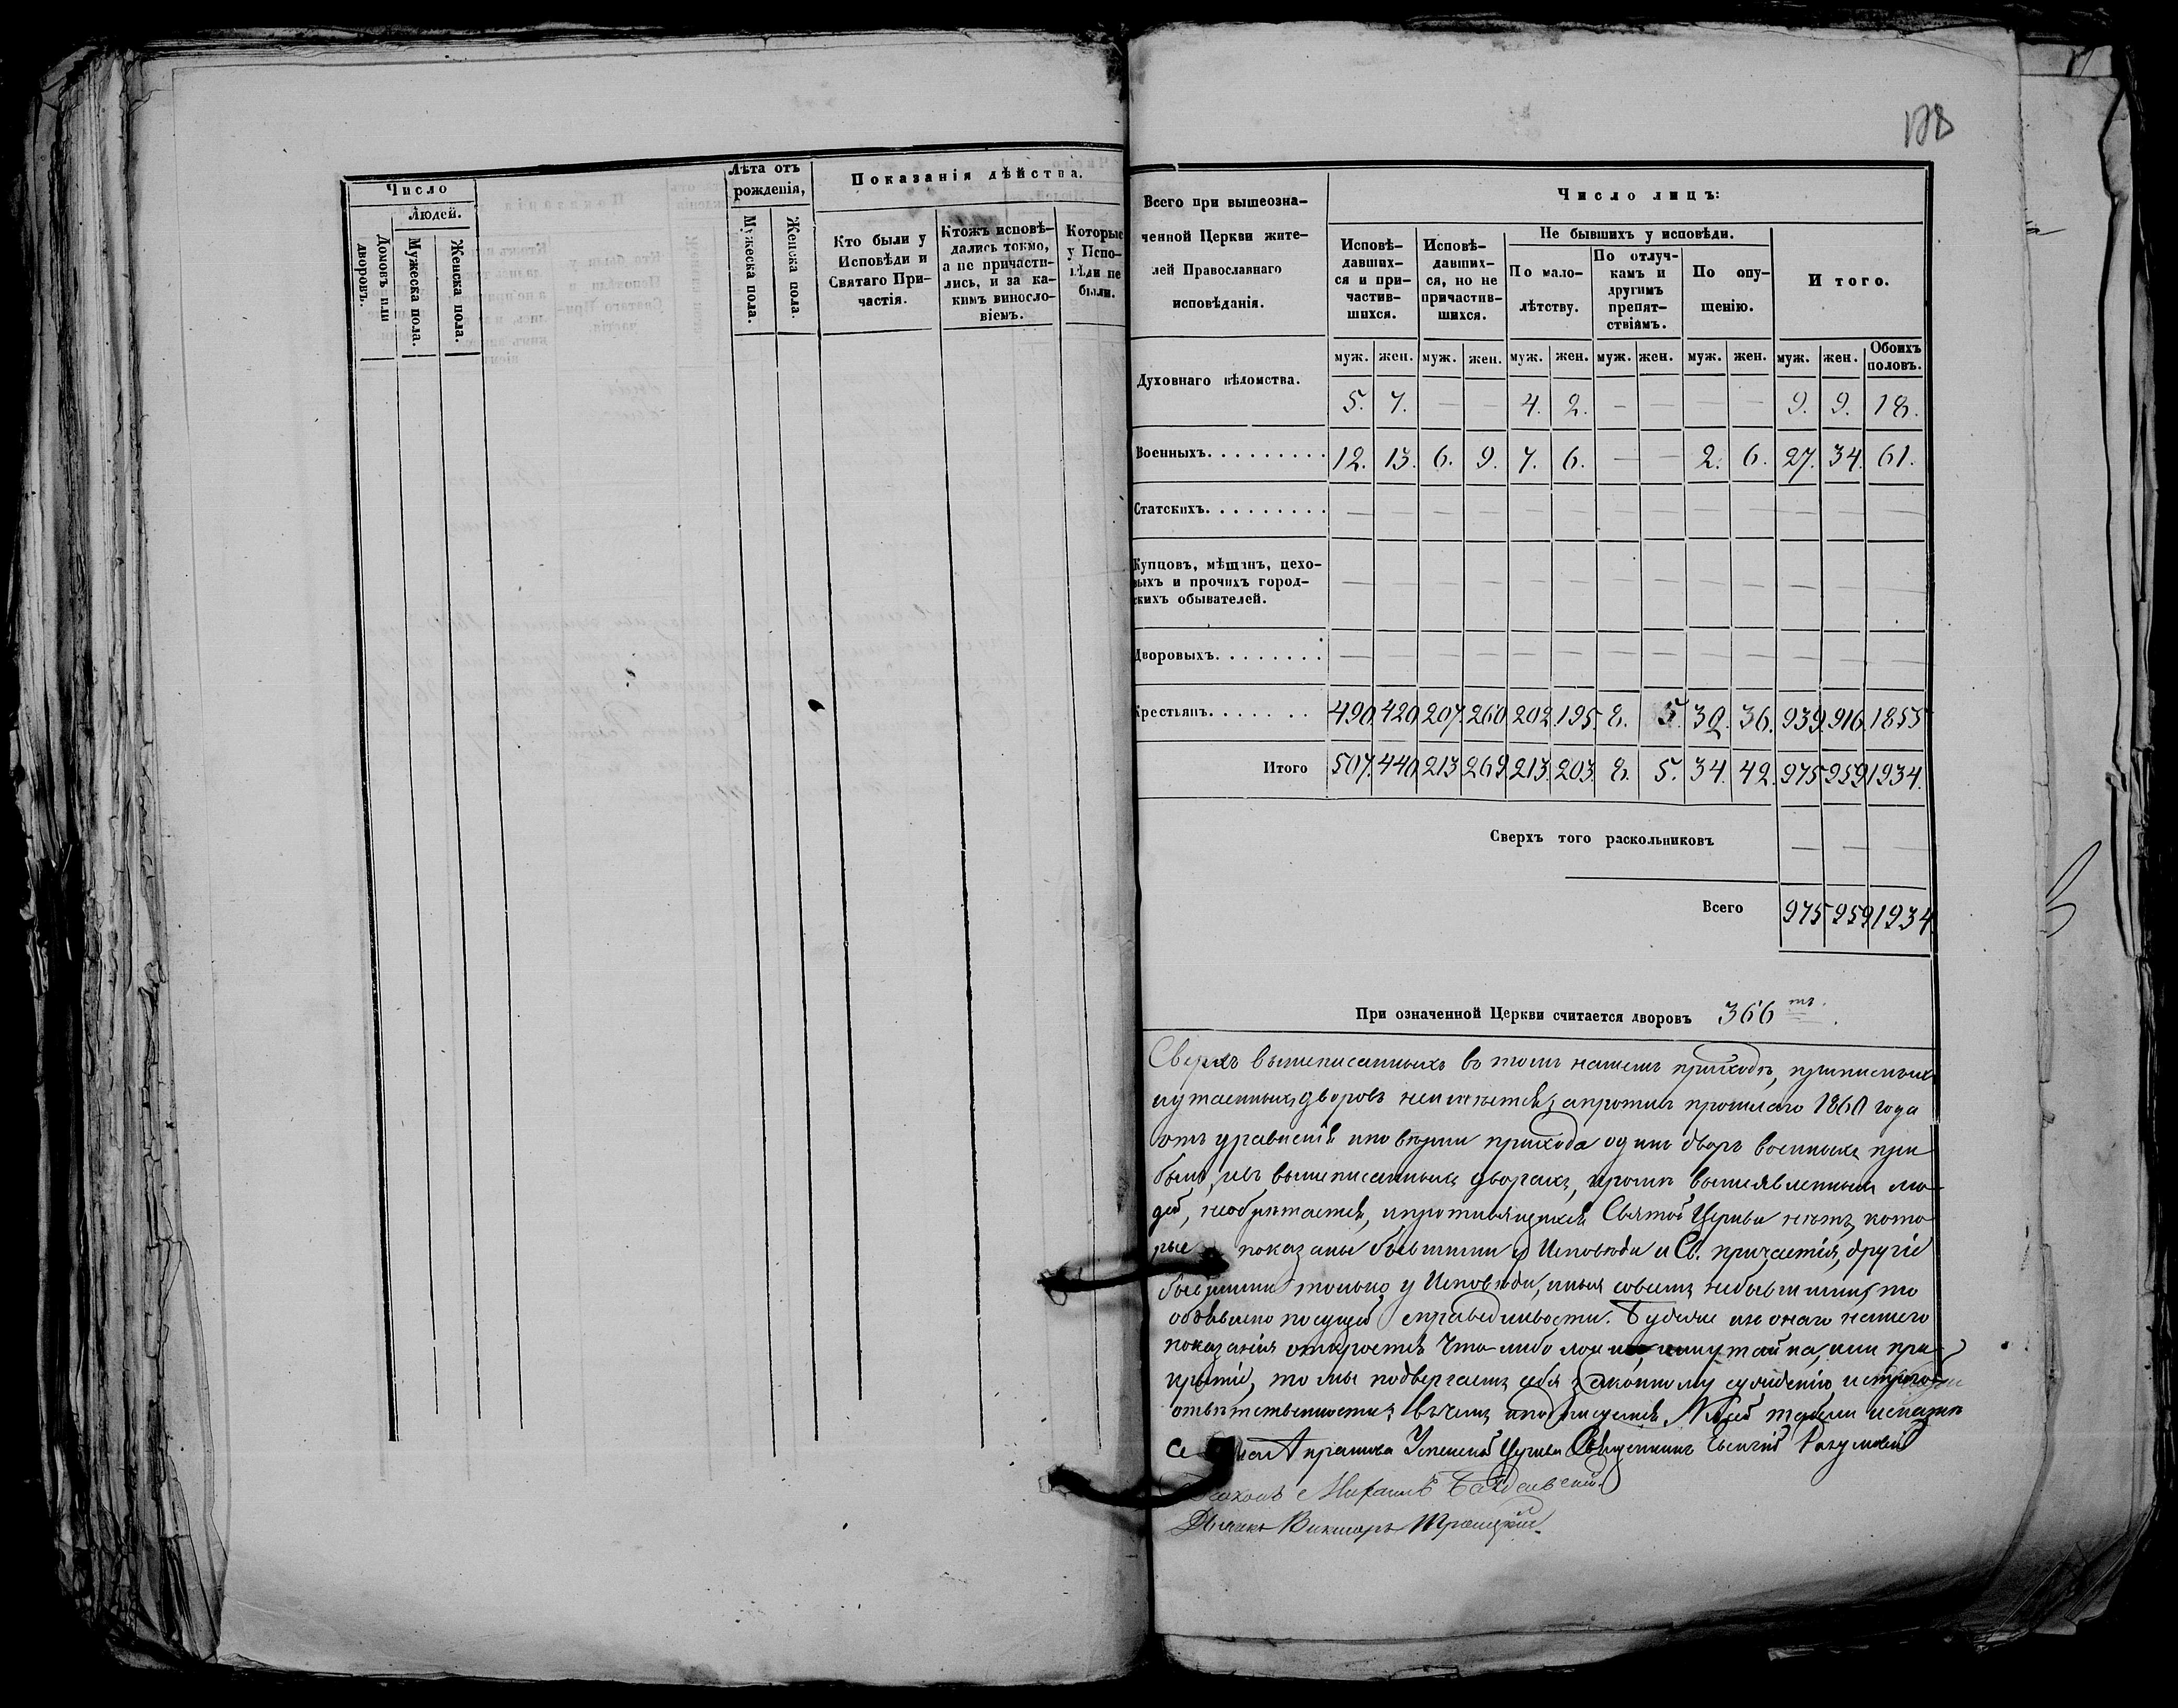 Число
Людей.
Домовъ или дворовъ.
Мужеска пола.
Женска пола.
Лѣта отъ рожденія,
Мужеска пола.
Женска пола.
Показанія дѣйства.
Кто были у Исповѣди и Святаго Причастія.
Ктожъ исповѣдались токмо, а не причастились, и за какимъ винословіемъ.
Которые у Исповѣди не были.
178
Всего при вышеозна-
ченной Церкви жите-
лей Православнаго
исповѣданія.
Число лицъ:
Исповѣ-
давших-
ся и при-
частив-
шихся.
Исповѣ-
давших-
ся, но не
причастив-
шихся.
Не бывшихъ у исповѣди.
По мало-
лѣтству.
По отлуч-
камъ и
другимъ
препят-
ствіямъ.
По опу-
щенію.
Итого.
муж. жен. муж. жен. муж. жен. муж. жен. муж. жен. муж. жен. Обоихъ половъ.
Духовнаго вѣдомства. 5. 7. — — 4. 2. — — — — 9. 9. 18.
Военныхъ......... 12. 13. 6. 9. 7. 6. — — 2. 6. 27. 34. 61.
Статскихъ......... — — — — — — — — — — — — —
Купцовъ, мѣщанъ, цехо-
выхъ и прочихъ город-
скихъ обывателей. — — — — — — — — — — — — —
Дворовыхъ........ — — — — — — — — — — — — —
Крестьянъ....... 490 420 207. 260 202. 195. 8. 5. 32. 36. 939. 916. 1855
Итого 507. 440 213 269 213. 203. 8. 5. 34. 42. 975 959 1934.
Сверхъ того раскольниковъ — — —
Всего 975 959 1934.
При означенной Церкви считается дворовъ 366 тъ.
Сверхъ вышеписанныхъ въ томъ нашемъ приходѣ, приписныхъ
и утаенныхъ дворовъ неимѣется, а противъ прошлаго 1860 года
отъ уравненія прихода одинъ дворъ военныхъ при
былъ, и въ вышеписанныхъ дворахъ, кромѣ вышеявленныхъ лю
дей, необрѣтается, и противящихся Святой Церкви нѣтъ, кото
рые показаны бывшими у Исповѣди и Св. причастія, другіе
бывшими только у Исповѣди, иныя совсѣмъ небывшими, то
объявлено по сущей справедливости. Будеже изъ онаго нашего
показанія откроется что-либо или при
крытіе, то мы подвергаемъ себя законному сужденію и строгой
отвѣтственности; въ чемъ и подписуемся. Къ сей табели
Успенской Церкви Священникъ Разумовъ
Дьяконъ Михаилъ
Дьячекъ Викторъ Троицкій.